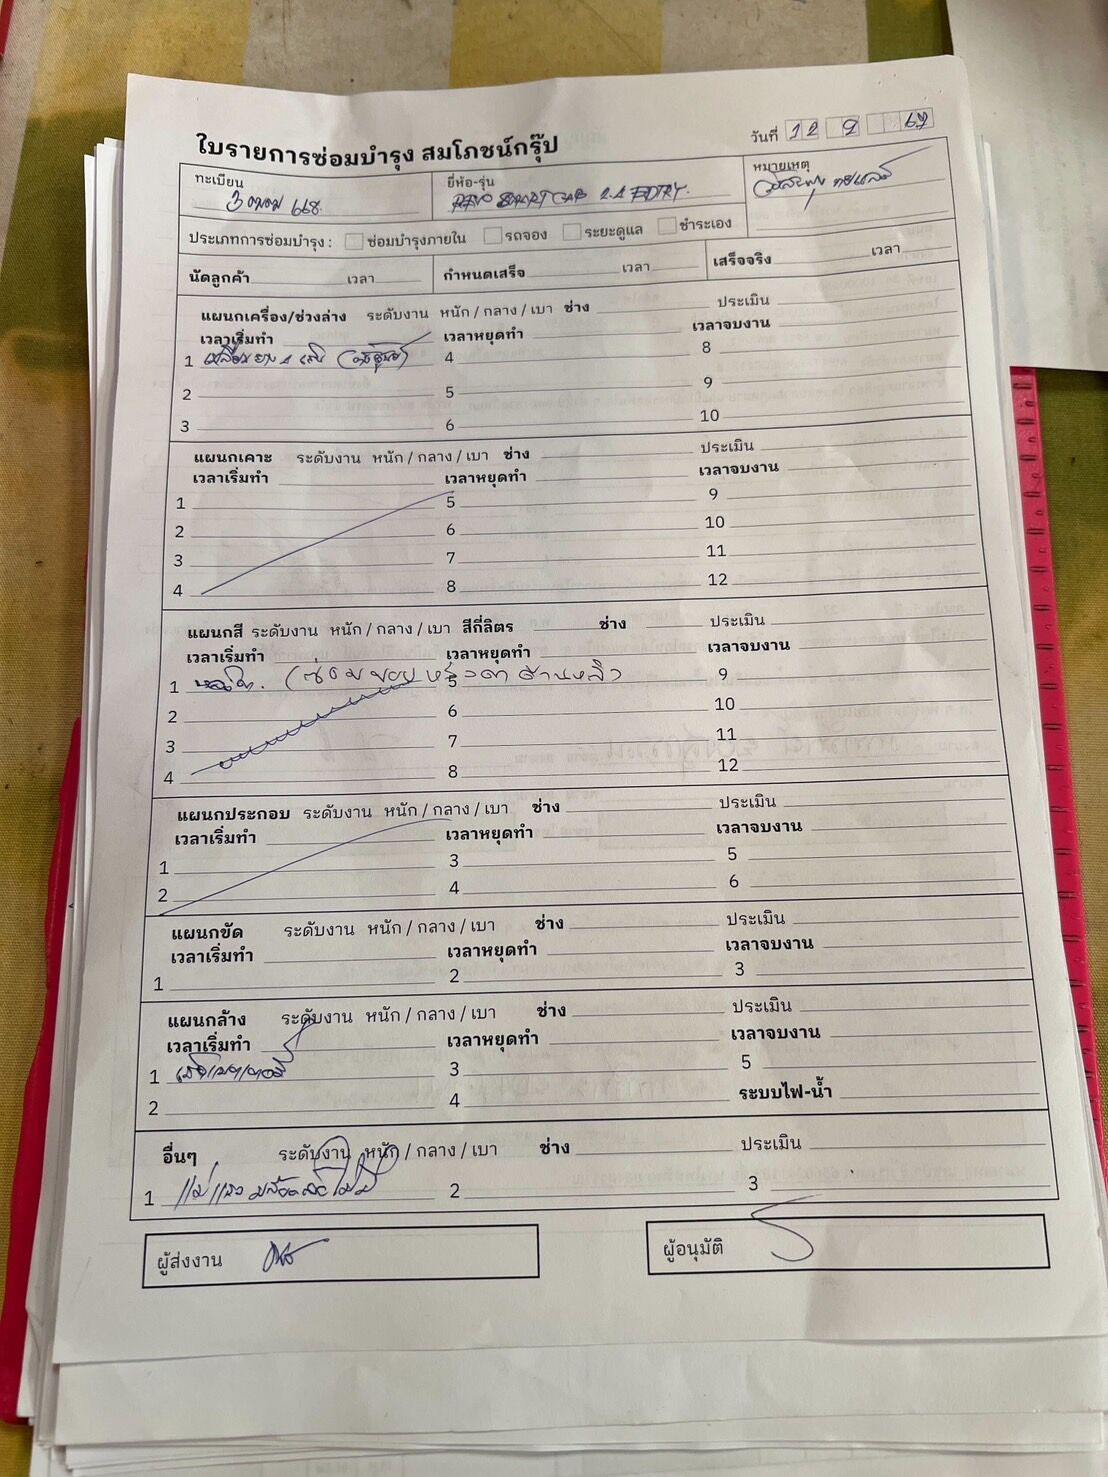 ใบรายการซ่อมบำรุง สมโภชน์กรุ๊ป
วันที่ 12 9 67
ทะเบียน
ยี่ห้อ-รุ่น
หมายเหตุ
REVO SMART CAB 2.4 ENTRY.
ประเภทการซ่อมบำรุง : ซ่อมบำรุงภายใน รถจอง ระยะดูแล ชำระเอง
นัดลูกค้า เวลา กำหนดเสร็จ เวลา เสร็จจริง เวลา
แผนกเครื่อง/ช่วงล่าง ระดับงาน หนัก / กลาง / เบา ช่าง ประเมิน
เวลาเริ่มทำ เวลาหยุดทำ เวลาจบงาน
1 4 8
2 5 9
3 6 10
แผนกเคาะ ระดับงาน หนัก / กลาง / เบา ช่าง ประเมิน
เวลาเริ่มทำ เวลาหยุดทำ เวลาจบงาน
1 5 9
2 6 10
3 7 11
4 8 12
แผนกสี ระดับงาน หนัก / กลาง / เบา สีกี่ลิตร ช่าง ประเมิน
เวลาเริ่มทำ เวลาหยุดทำ เวลาจบงาน
1 5 9
2 6 10
3 7 11
4 8 12
แผนกประกอบ ระดับงาน หนัก / กลาง / เบา ช่าง ประเมิน
เวลาเริ่มทำ เวลาหยุดทำ เวลาจบงาน
1 3 5
2 4 6
แผนกขัด ระดับงาน หนัก / กลาง / เบา ช่าง ประเมิน
เวลาเริ่มทำ เวลาหยุดทำ เวลาจบงาน
1 2 3
แผนกล้าง ระดับงาน หนัก / กลาง / เบา ช่าง ประเมิน
เวลาเริ่มทำ เวลาหยุดทำ เวลาจบงาน
1 3 5
2 4 ระบบไฟ-น้ำ
อื่นๆ ระดับงาน หนัก / กลาง / เบา ช่าง ประเมิน
1 2 3
ผู้ส่งงาน
ผู้อนุมัติ